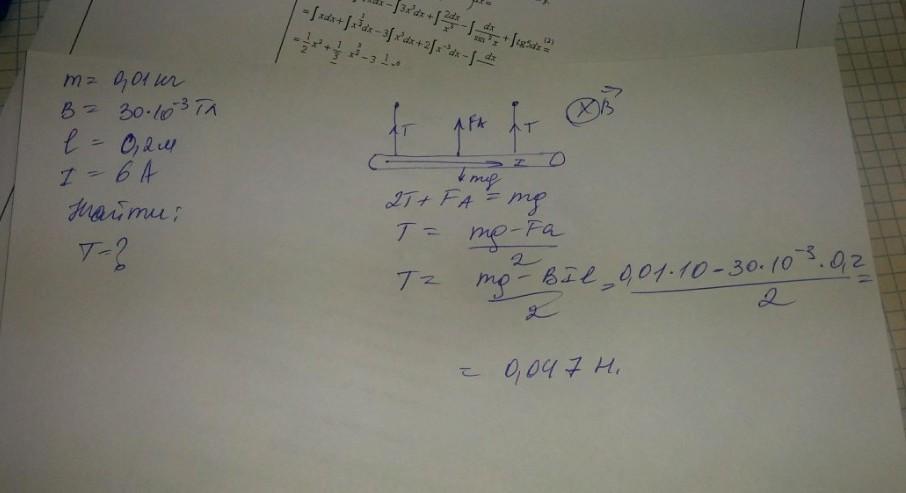 = ∫xdx + ∫x^{1/2}dx − 3∫x³dx + 2∫x⁻³dx − ∫dx
m = 0,01 кг
B = 30·10⁻³ Тл
l = 0,2м
I = 6 А
Найти:
T = ?
T FA T ⓧ B⃗
I
mg
2T + FA = mg
T = (mg − Fа)/2
T = (mg − BIl)/2 = (0,01·10 − 30·10⁻³·0,2)/2 =
= 0,047 Н.